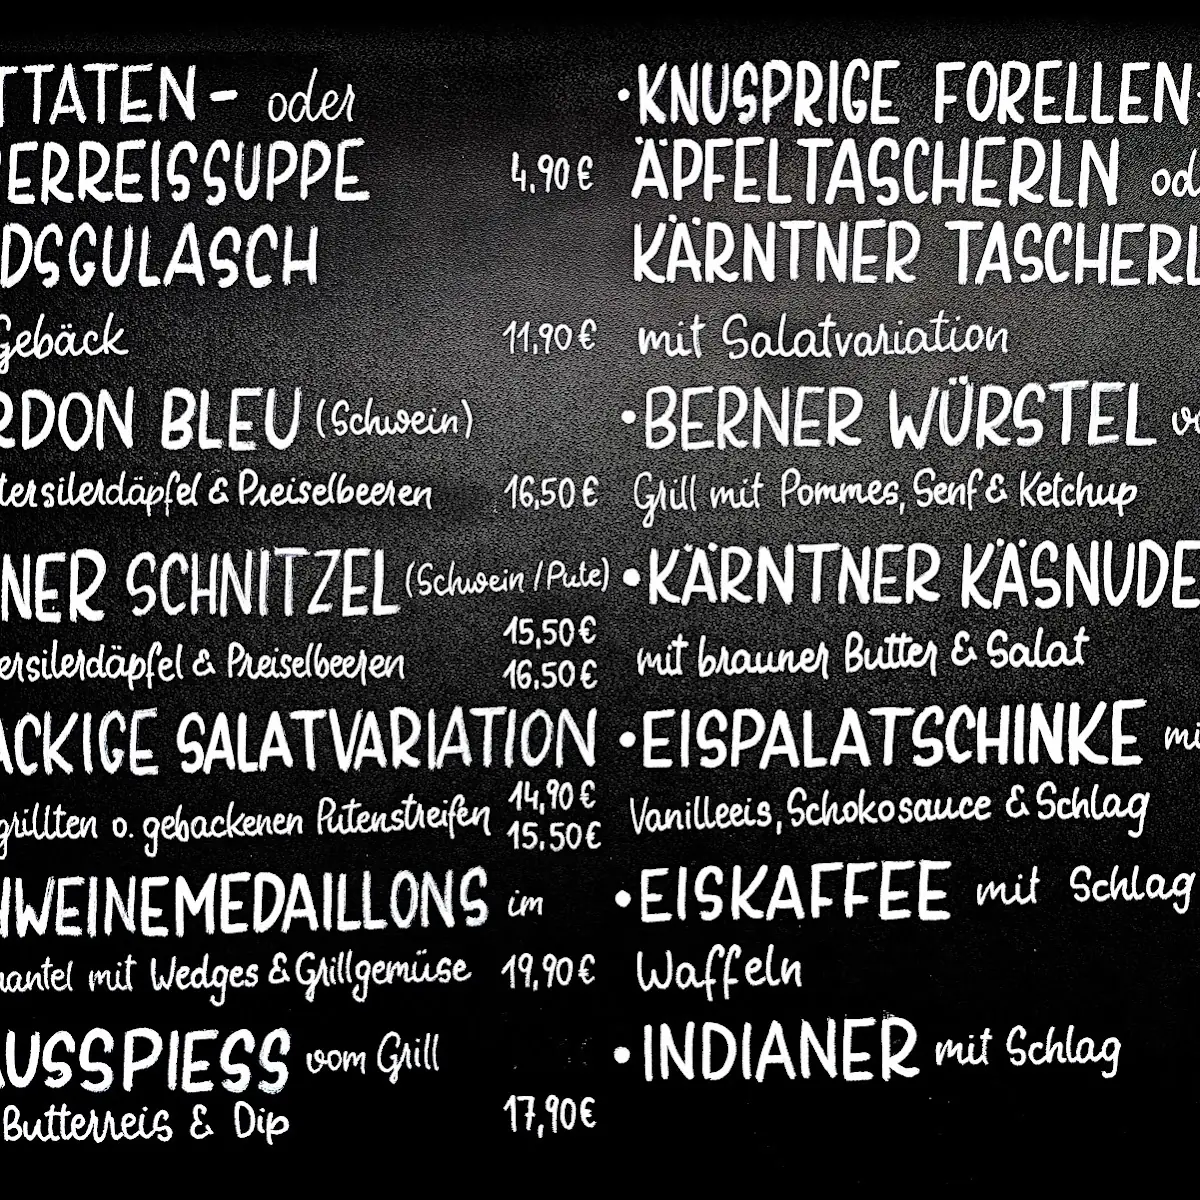 TTATEN- oder
ERREISSUPPE 4,90 €
DSGULASCH
Gebäck 11,90 €
RDON BLEU (Schwein)
tersilerdäpfel & Preiselbeeren 16,50 €
NER SCHNITZEL (Schwein / Pute)
15,50 €
ersilerdäpfel & Preiselbeeren 16,50 €
ACKIGE SALATVARIATION
14,90 €
grillten o. gebackenen Putenstreifen
15,50 €
WEINEMEDAILLONS im
antel mit Wedges & Grillgemüse 19,90 €
AUSSPIESS vom Grill
Butterreis & Dip 17,90 €
·KNUSPRIGE FORELLEN-
ÄPFELTASCHERLN od
KÄRNTNER TASCHERL
mit Salatvariation
·BERNER WÜRSTEL vo
Grill mit Pommes, Senf & Ketchup
·KÄRNTNER KÄSNUDE
mit brauner Butter & Salat
·EISPALATSCHINKE mi
Vanilleeis, Schokosauce & Schlag
·EISKAFFEE mit Schlag
Waffeln
·INDIANER mit Schlag